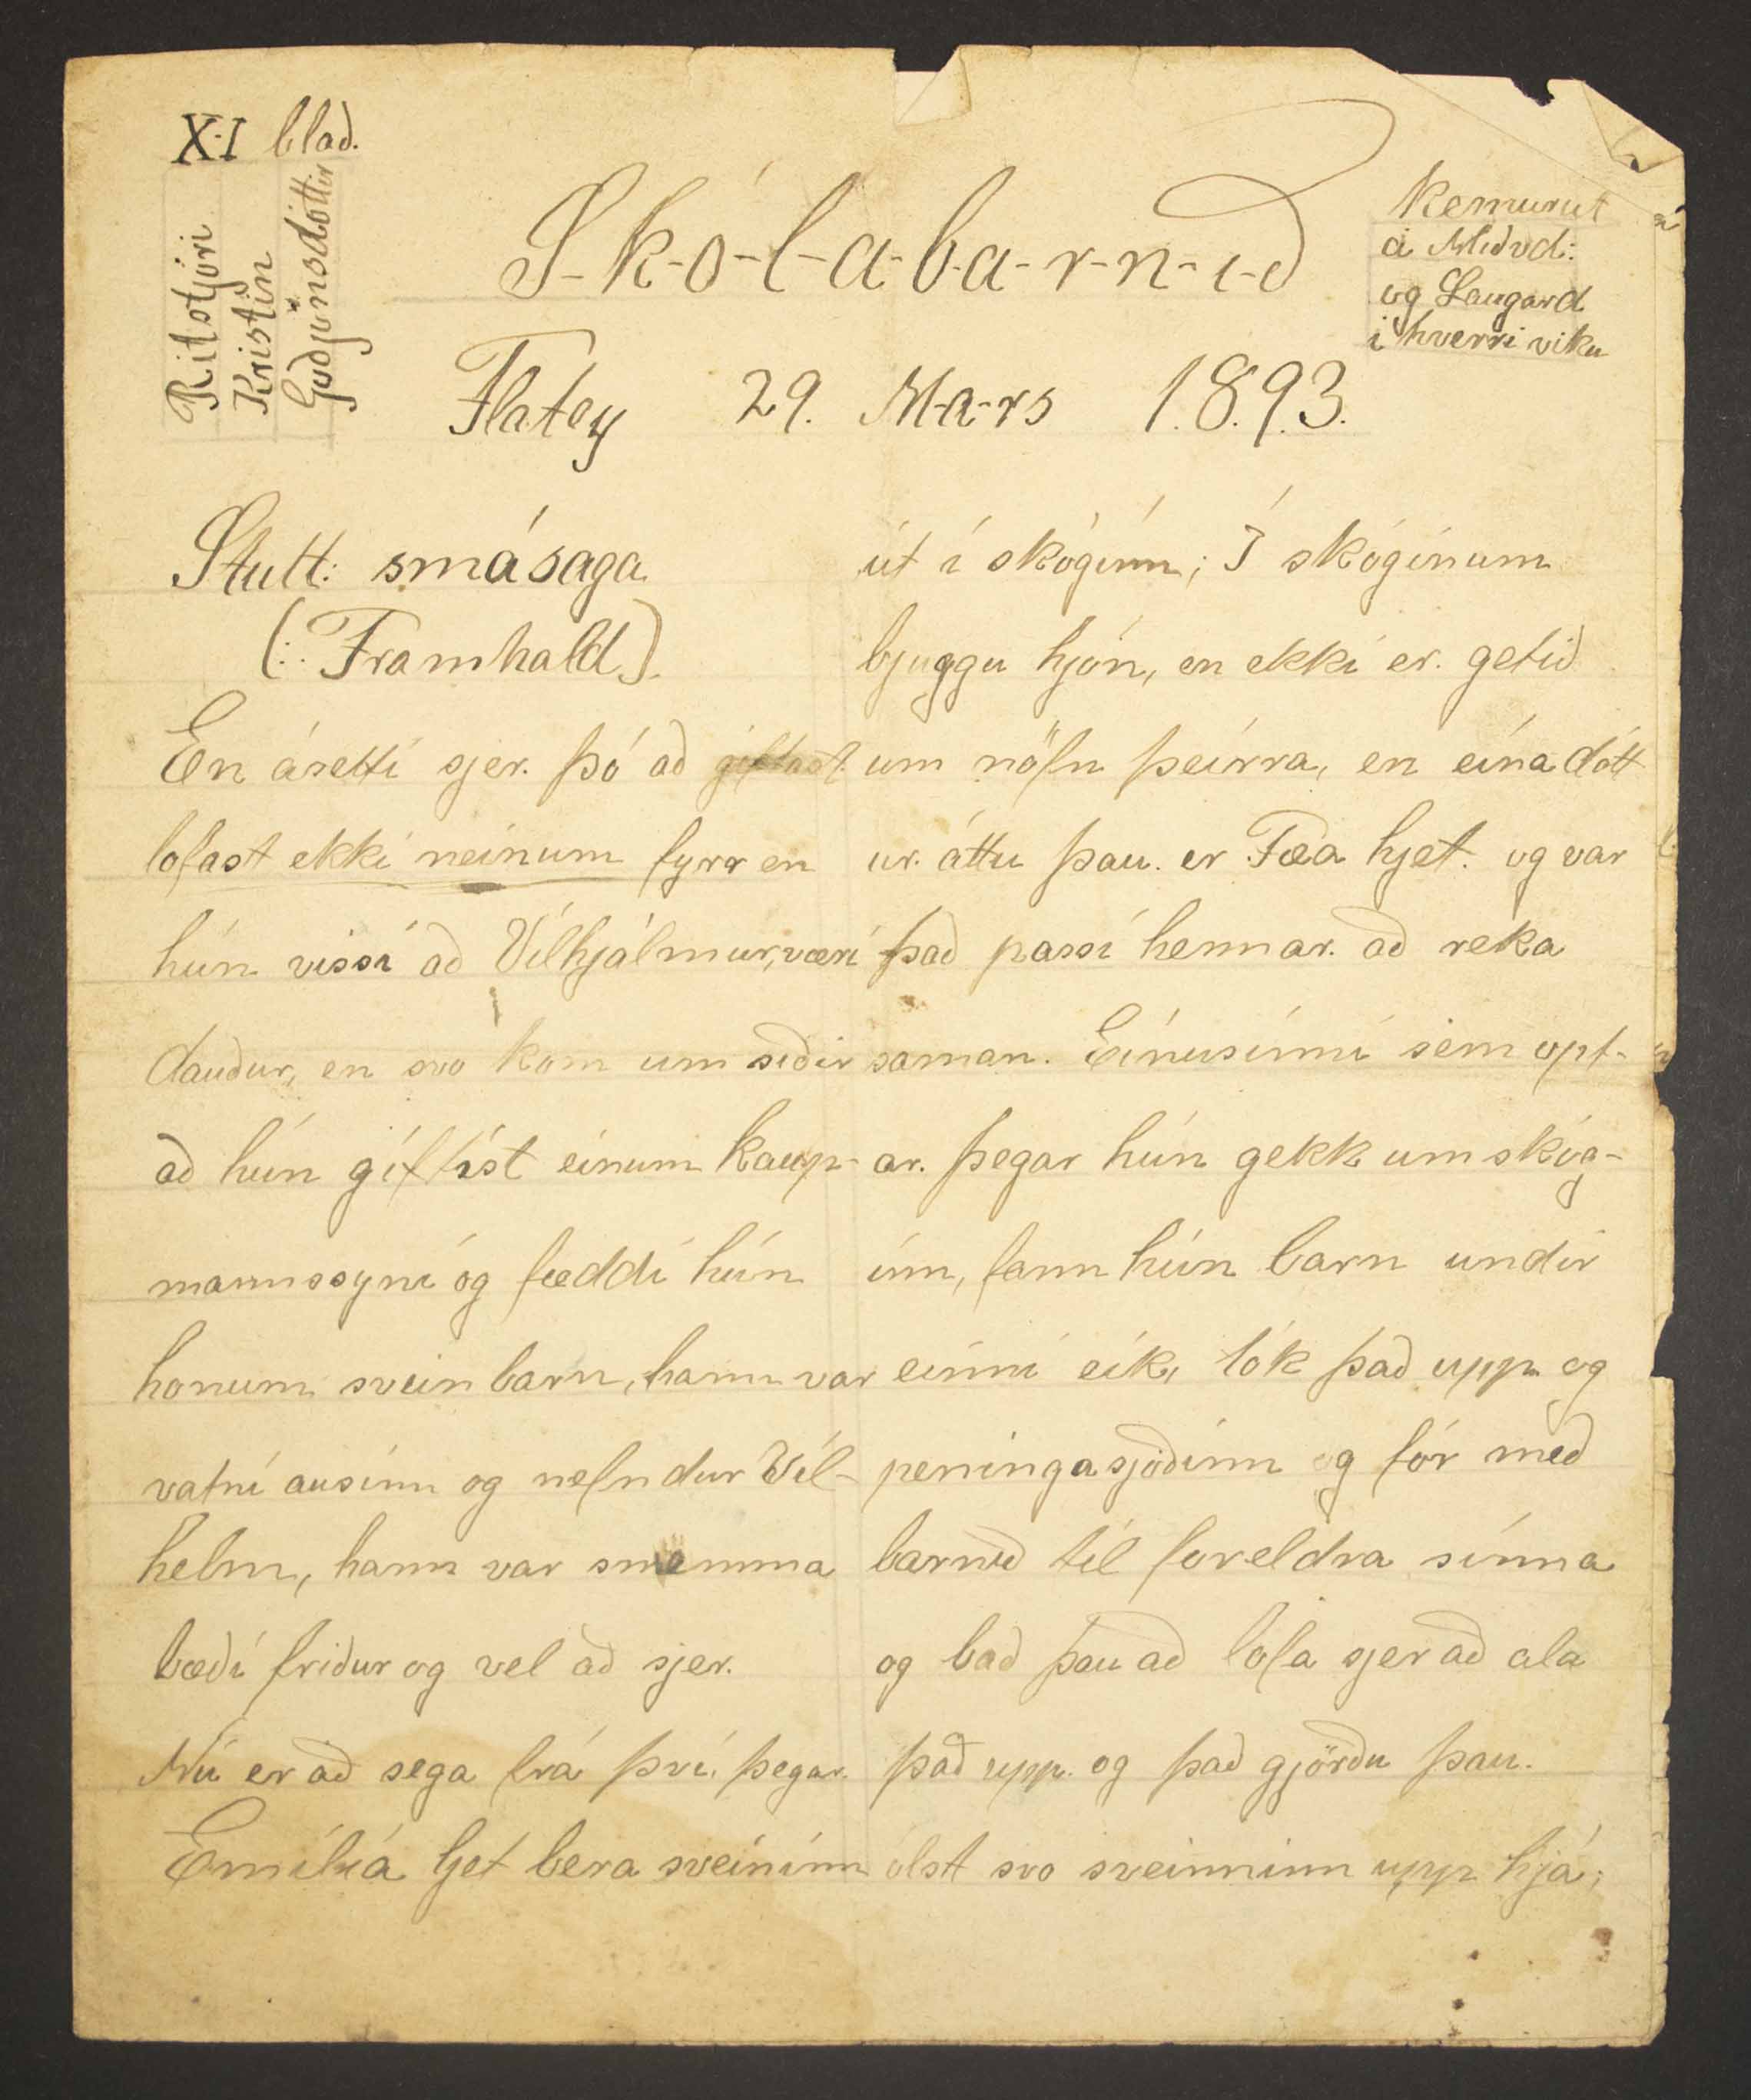 X-I blað.
Ritstjóri
Kristín
Guðjónsdóttir
S-k-ó-l-a-b-a-r-n-i-ð
Kemur út
á Miðvd:
og Laugard
í hverri viku
Flatey 29. M-a-rs 1.8.9.3.
Stutt: smásaga
(:Framhald).
En ásetti sjer. þó að giftast
lofast ekki neinum fyrr en
hún vissi að Vilhjálmur, væri
dauður, en svo kom um síðir
að hún giftist einum kaup-
mannssyni og fæddi hún
honum svein barn, hann var
vatni ausinn og nefndur Vil-
helm, hann var snemma
bæði fríður og vel að sjer.
Nú er að sega frá því, þegar
Emilía ljet bera sveininn
út í skóginn; Í skóginum
bjuggu hjón, en ekki er. getið
um nöfn þeirra, en eina dótt
ur. áttu þau. er Fæa hjet. og var
það passi hennar. að reka
saman. Einusinni sem opt-
ar. þegar hún gekk um skóg-
inn, fann hún barn undir
einni eik, tók það upp og
peningasjóðinn og fór með
barnið til foreldra sinna
og bað þau að lofa sjer að ala
það upp. og það gjörðu þau.
ólst svo sveinninn upp hjá;